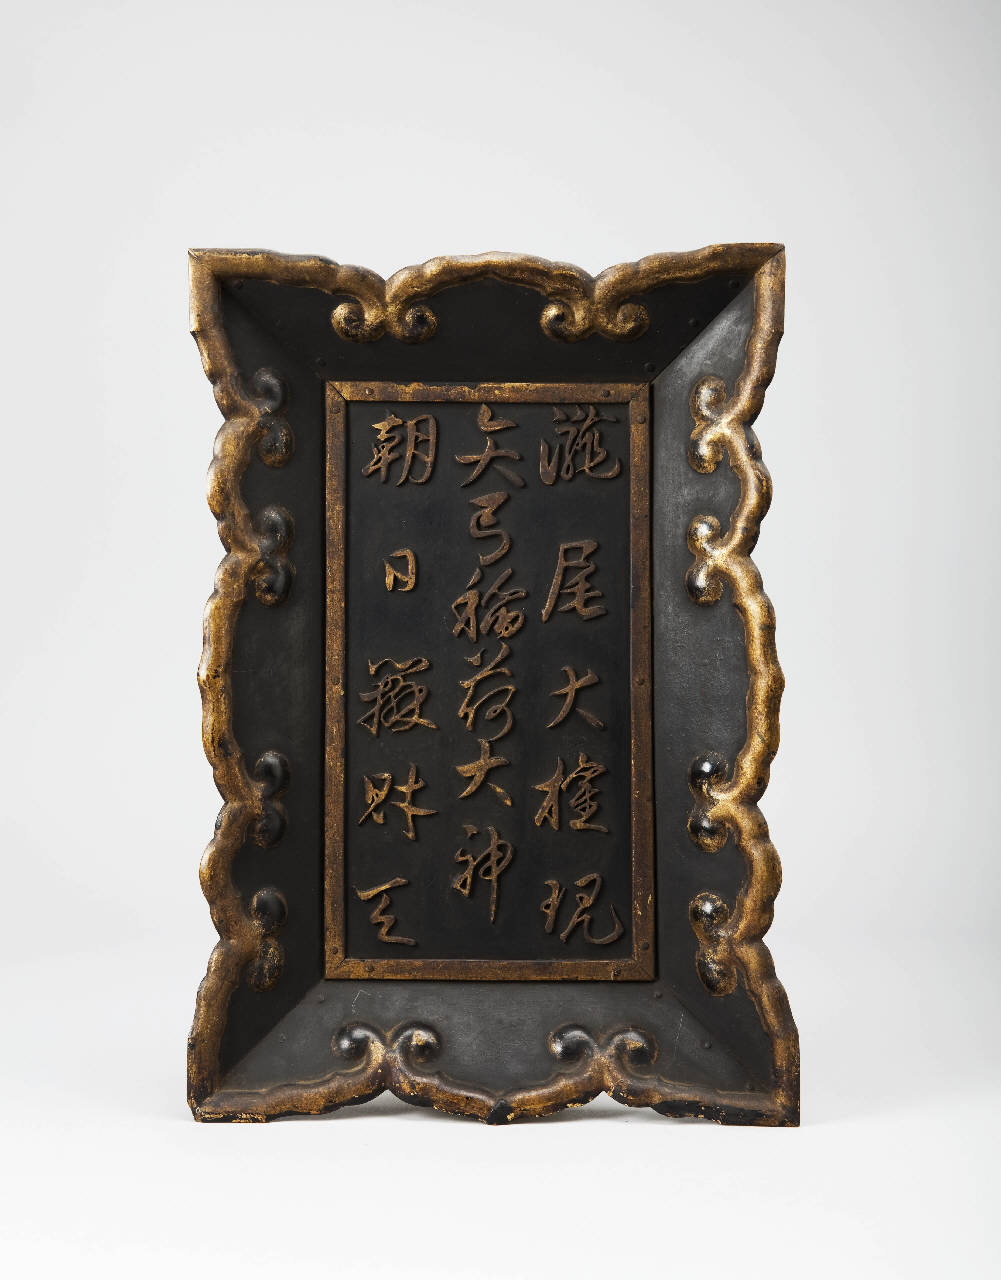 瀧尾大権現
矢弓稲荷大神
朝日辨財天